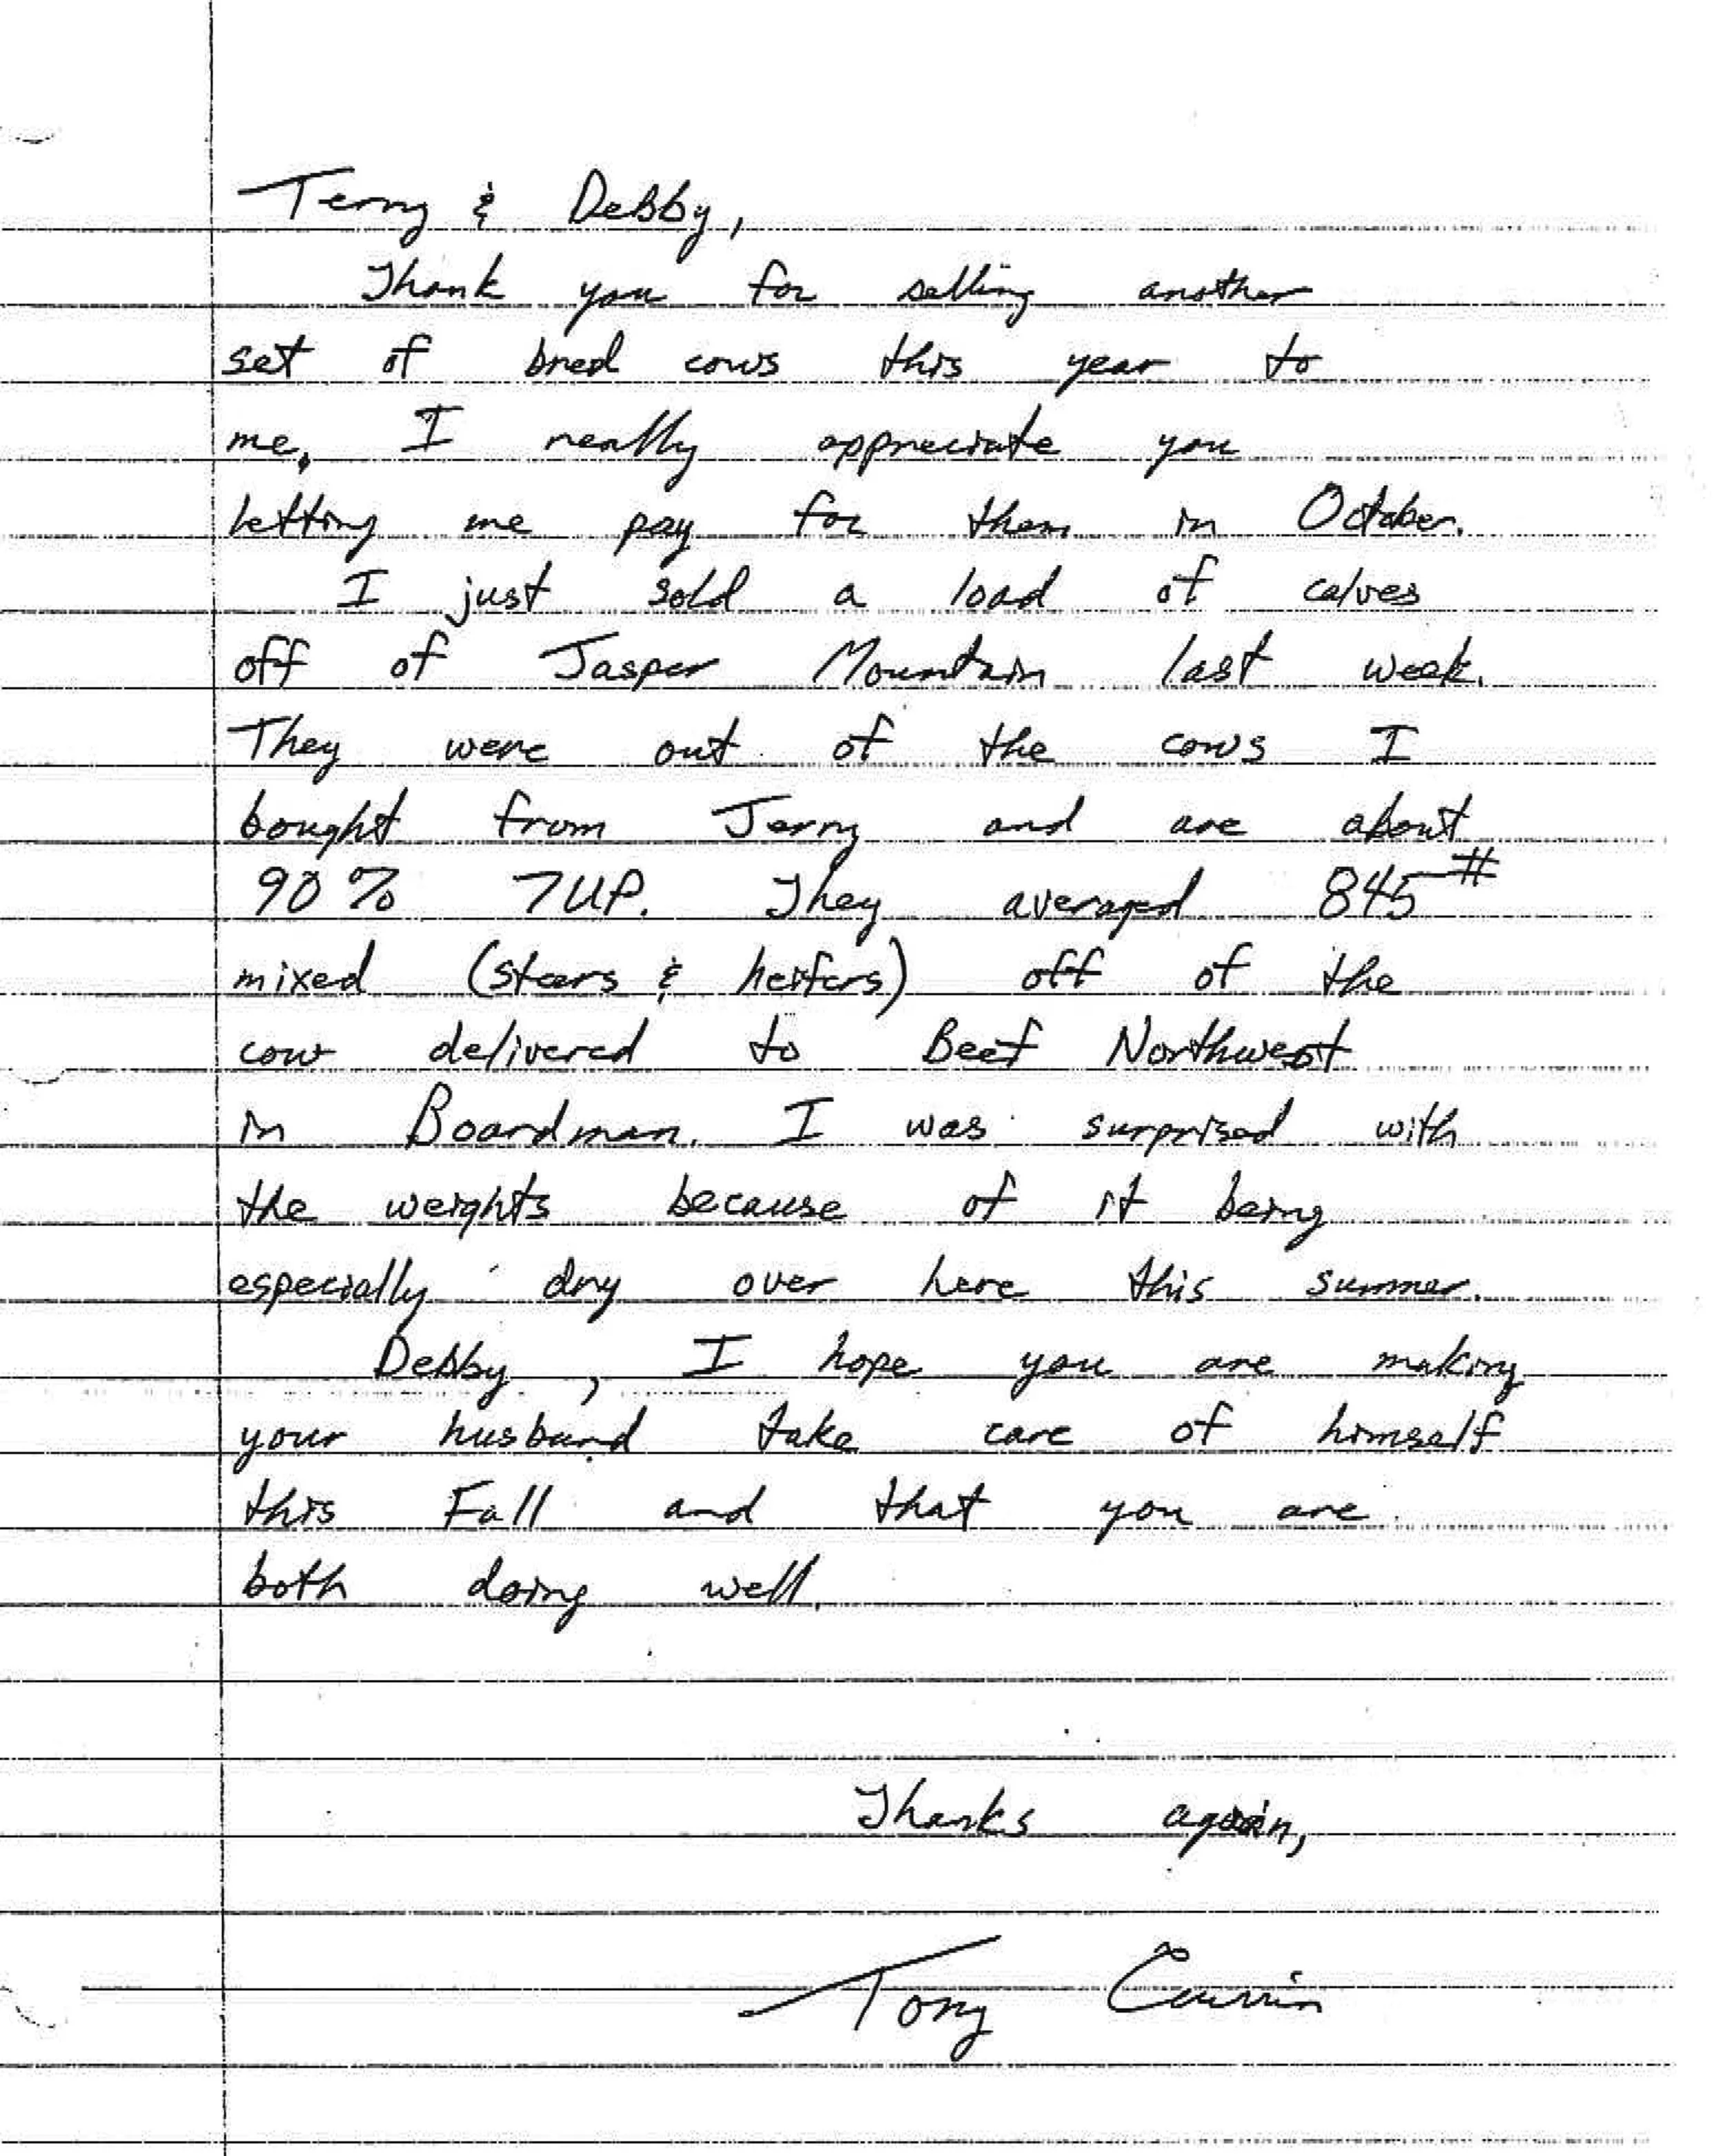 Terry & Debby,
Thank you for selling another
set of bred cows this year to
me, I really appreciate you
letting me pay for them in October.
I just sold a load of calves
off of Jasper Mountain last week.
They were out of the cows I
bought from Jerry and are about
90% 7UP. They averaged 845#
mixed (steers & heifers) off of the
cow delivered to Beef Northwest
in Boardman. I was surprised with
the weights because of it being
especially dry over here this summer.
Debby, I hope you are making
your husband take care of himself
this Fall and that you are
both doing well.
Thanks again,
Tony